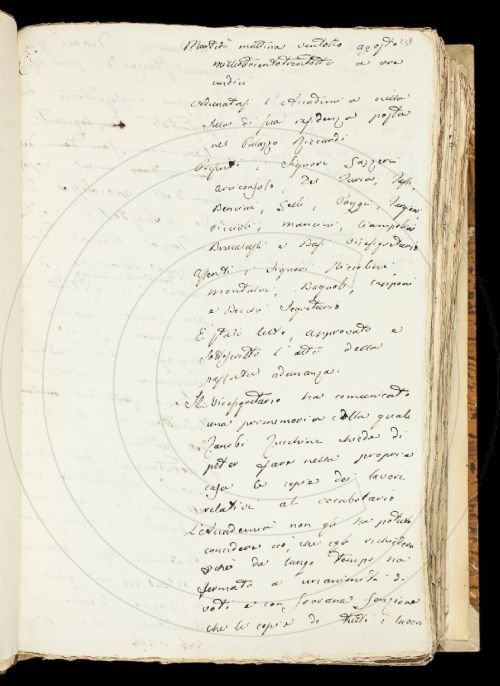 Martedì mattina ventotto agosto
milleottocentotrentotto a ore
undici
Adunatasi l'Accademia nella
Sala di sua residenza posta
nel Palazzo Riccardi
Presenti i Signori Gazzeri
arciconsolo, Del Furia,
Bencini, Poggi,
Piccioli, Mancini, Ciampolini
Brucalassi e Basi Vicesegretario
Assenti i Signori Niccolini,
Montalvi, Bagnoli, Capponi
e Becchi Segretario
È stato letto, approvato e
sottoscritto l'atto della
passata adunanza.
Il Vicesegretario ha comunicato
una promemoria colla quale
Zanobi Zucchini chiede di
poter fare nella propria
casa le copie dei lavori
relativi al vocabolario
L'Accademia non gli ha potuto
concedere ciò, che egli richiedeva
chè da lungo tempo ha
fermato a unanimità di
voti e con Sovrana Sanzione
che le copie di tutti i lavori